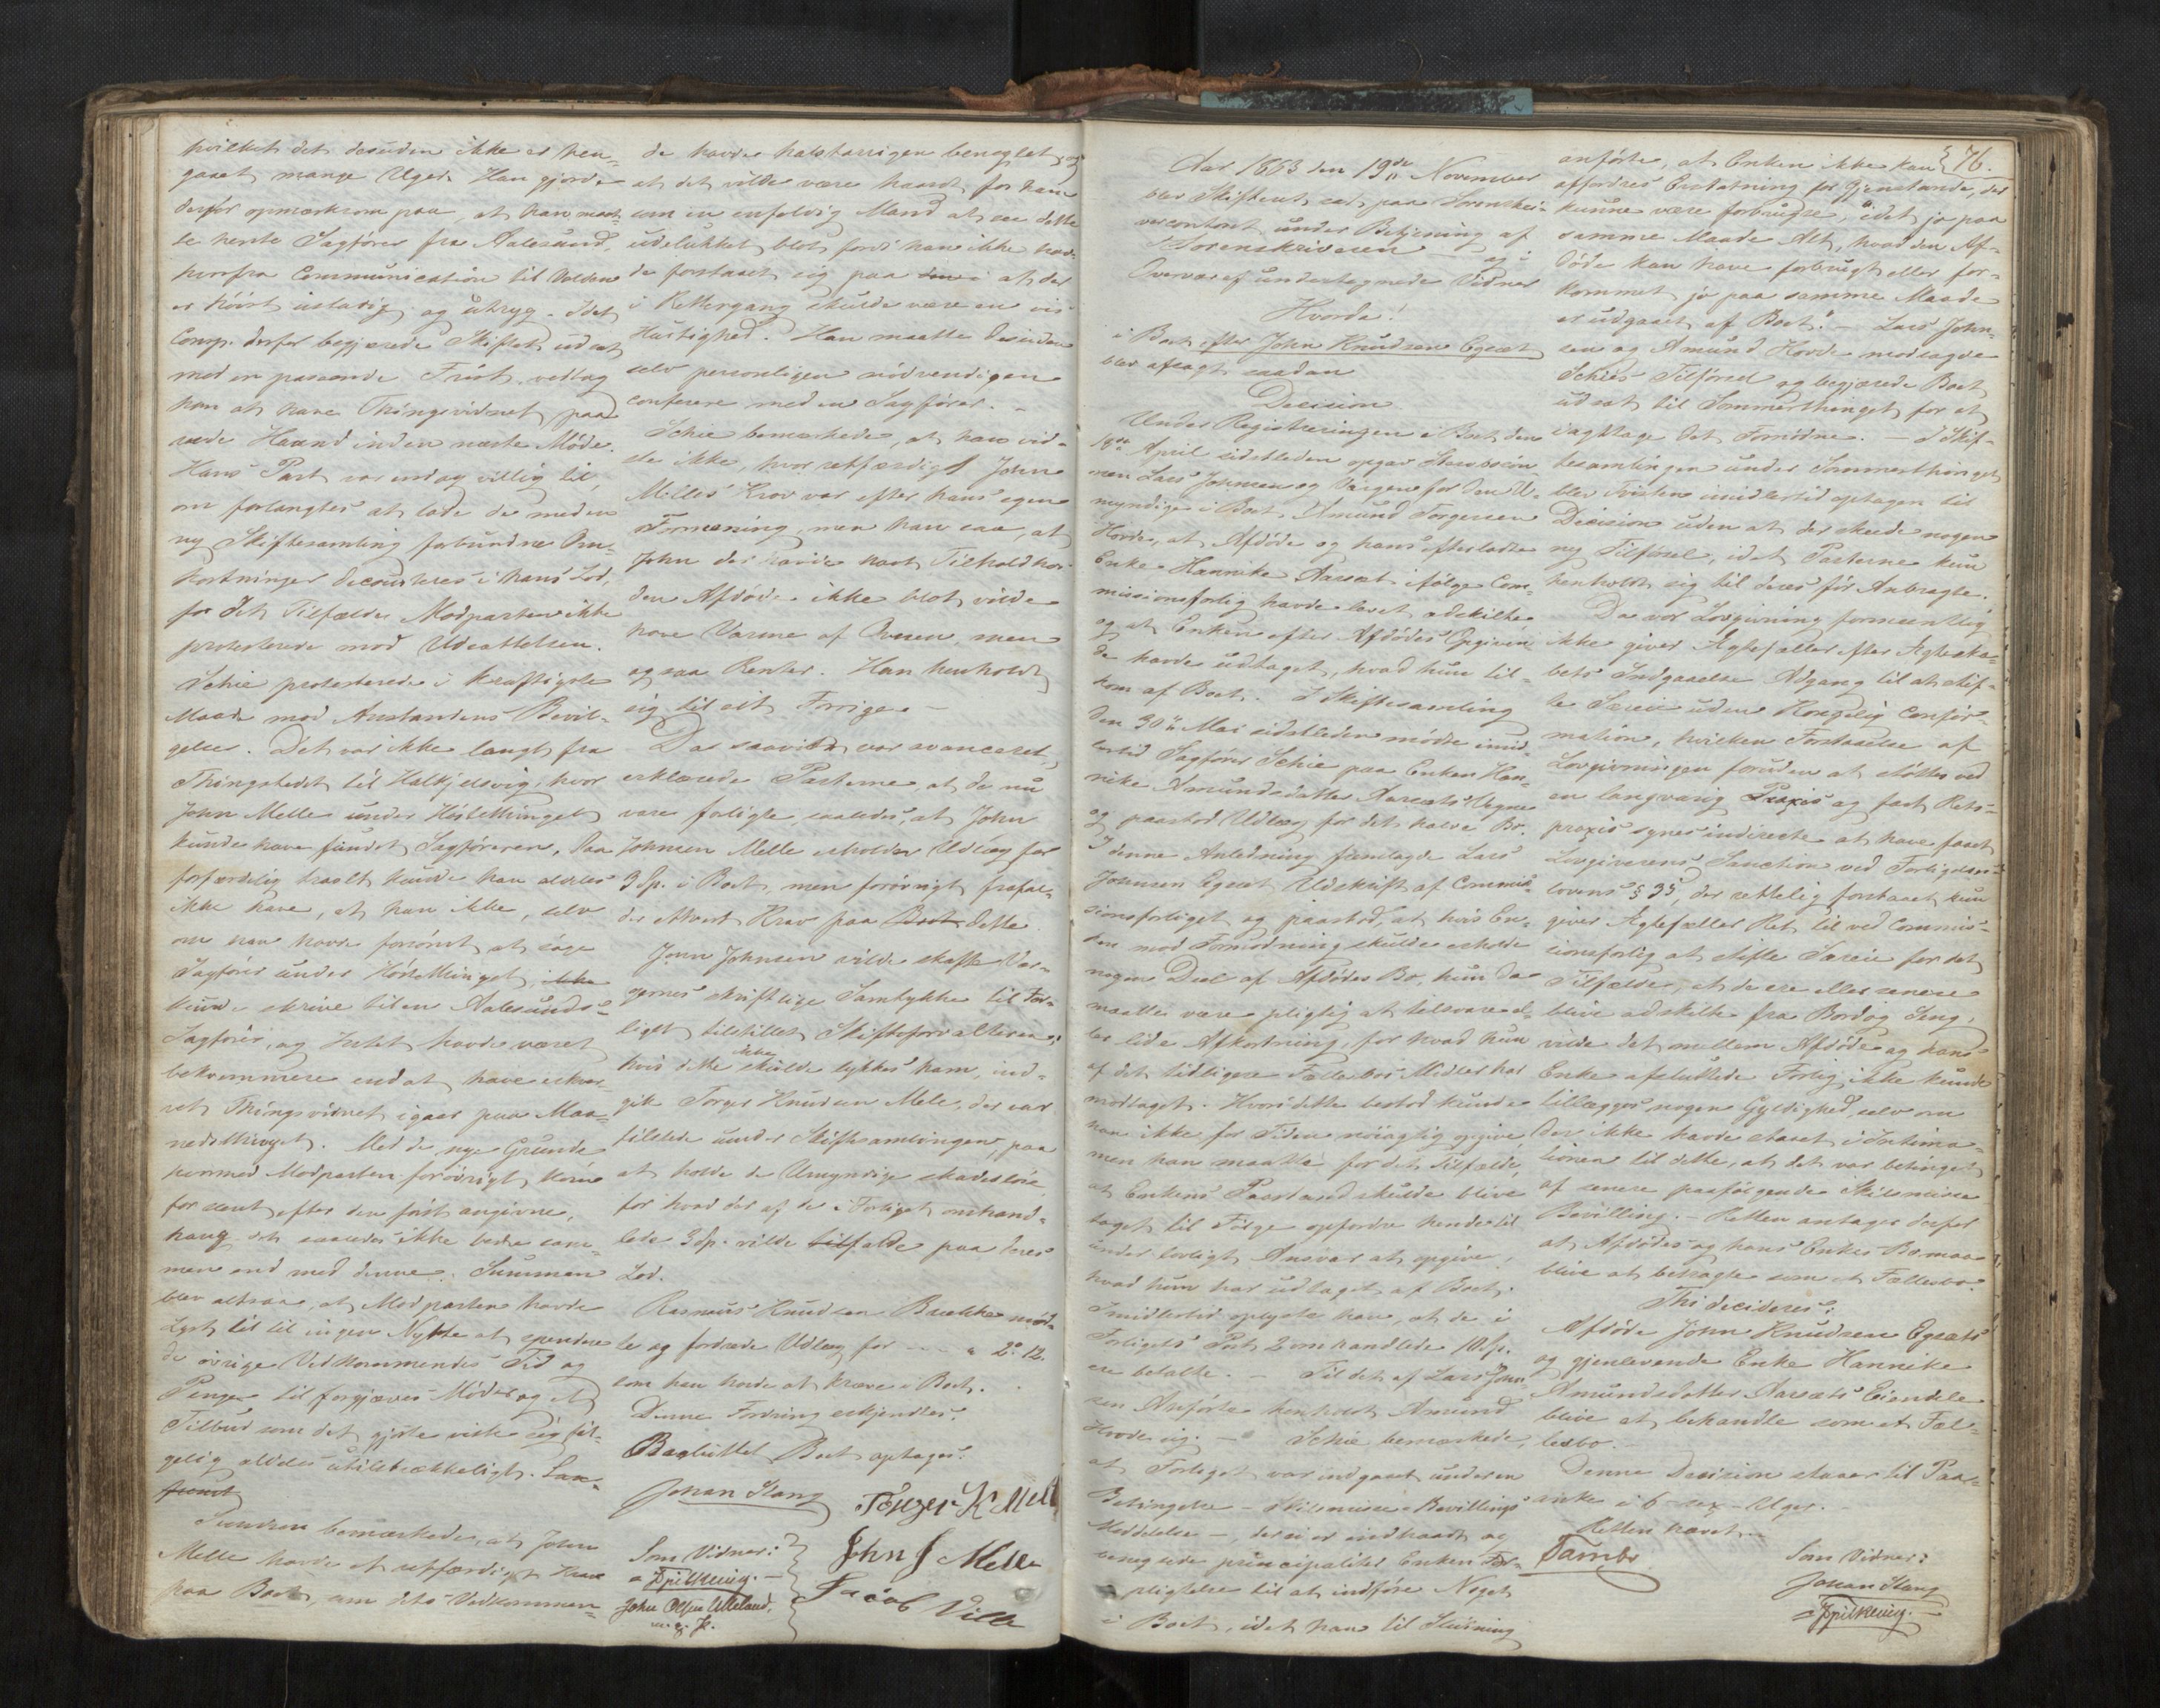 hvilket det desuden ikke er hen-
gaaet mange Uger. Han gjorde
derfor opmærksom paa, at han maat
te hente Sagfører fra Aalesund,
hvorfra Communication til Volden
er høist ustadig og utryg. Idet
Comp. derfor begjærede Skiftet udsat
med en passende Frist, vedtog
han at have Thingsvidnet paa
rede Haand inden næste Møde.
Hans Part var endog villig til,
om forlangtes at lade de med en
ny Skiftesamling forbundne Om-
kostninger decourteres i hans Lod,
for det Tilfælde Modparten ikke
protesterede mod Udsættelsen.
Schie protesterede i kraftigste
Maade mod Anstandens Bevil-
gelse. Det var ikke langt fra
Thingstedet til Halkjelsvig, hvor
John Melle under Høstethinget
kunde have fundet Sagføreren. Saa
forfærdelig travlt kunde han aldeles
ikke have, at han ikke, selv
om han havde forsømt at søge
Sagfører under Høstethinget, ikke
kunde skrive til en Aalesunds-
Sagfører, og Intet havde været
bekvemmere end at have erhver-
vet Thingsvidnet igaar paa Maa-
nedsthinget. Med de nye Grunde
hvormed Modparten forøvrigt kom
for sent efter den først angivne,
hang det saaledes ikke bedre sam-
men end med denne. Summen
blev altsaa, at Modparten havde
Lyst til til ingen Nytte at spendere
de øvrige Vedkommendes Tid og
Penge til forgjæves Møder og et
Tilbud som det gjorte viste sig føl-
gelig aldeles utilstrækkeligt.
Sundsen bemærkede, at John
Melle havde et retfærdigt Krav
paa Boet, om dets Vedkommen-
de havde halstarrigen benægtet, og
at det vilde være haardt for ham
som en enfoldig Mand at see dette
udelukket blot fordi han ikke hav-
de forstaaet sig paa den i at der
i Rettergang skulde være en vis
Hurtighed. Han maatte desuden
selv personligen nødvendigen
conferere med en Sagfører. –
Schie bemærkede, at han vid-
ste ikke, hvor retfærdigt John
Melles Krav var efter hans egen
Formening, men han saa, at
John der havde havt Tilhold hos
den Afdøde ikke blot vilde
have Varme af Ovnen, men
ogsaa Renter. Han henholdt
sig til sit Forrige. –
Da saavidt var avanceret,
erklærede Parterne, at de nu
vare forligte, saaledes, at John
Johnsen Melle erholder Udlæg for
3 Sp. i Boet, men forøvrigt frafal-
der ethvert Krav paa Boet dette.
John Johnsen vilde skaffe Vær-
gernes skriftlige Samtykke til For-
liget tilstillet Skifteforvalteren;
hvis dette ikke skulde lykkes ham, ind-
gik Torger Knudsen Mele, der var
tilstede under Skiftesamlingen, paa
at holde de Umyndige skadesløse
for hvad der af de i Forliget omhand-
lede 3 Sp. vilde tilfalde paa deres
Lod.
Rasmus Knudsen Brække mød-
te og fordrede Udlæg for - - - " 2. 12.
som han havde at kræve i Boet.
Denne Fordring erkjendtes.
Besluttet Boet optages.
Johan Stang
Torger K Mell
Som Vidner:
John J Melle
Spilkevig. –
John Olsen Ulleland,
m. p. P.
Jacob Ville
76.
Aar 1863 den 19de November
blev Skifteret sat paa Sorenskri-
vercontoret under Betjening af
Sorenskriveren – og i
Overvær af undertegnede Vidner
Hvorda!
i Boet efter John Knudsen Egset
blev afsagt saadan
Decision
Under Registreringen i Boet den
18de April sidstleden opgav Stervboson-
nen Lars Johnsen og Værgen for den U-
myndige i Boet, Amund Torgersen
Hovde, at Afdøde og hans efterladte
Enke Hannike Aarsæt ifølge Com-
missionsforlig havde levet adskilte
og at Enken efter Afdødes Opgiven-
de havde udtaget, hvad hun til-
kom af Boet. I Skiftesamling
den 30te Mai sidstleden mødte imid-
lertid Sagfører Schie paa Enken Han-
nike Amundsdatter Aarsæts Vegne
og paastod Udlæg for det halve Bo.
I denne Anledning fremlagde Lars
Johnsen Egset Udskrift af Commis-
sionsforliget og paastod, at hvis En-
ken mod Formodning skulde erholde
nogen Deel af Afdødes Bo, hun da
maatte være pligtig at tilsvare el-
ler lide Afkortning, for hvad hun
af det tidligere Fællesboes Midler har
modtaget. Hvori dette bestod kunde
han ikke for Tiden nøiagtig opgive
men han maatte for det Tilfælde,
at Enkens Paastand skulde blive
taget til Følge opfordre hende til
under lovligt Ansvar at opgive,
hvad hun har udtaget af Boet.
Imidlertid oplyste han, at de i
Forligets Post 2 omhandlede 10 Sp.
ere betalte. – Til det af Lars John-
sen Anførte henholdt Amund
Hovde sig. – Schie bemærkede,
at Forliget var indgaaet under en
Betingelse – Skilsmisse-Bevillings
Meddelelse –, der ei er indtraadt og
benegtede principaliter Enkens For-
pligtelse til at indføre Noget
i Boet, idet han til Slutning
anførte, at Enken ikke kan
affordres Erstatning for Gjenstande, der
kunne være forbrugte, idet jo paa
samme Maade Alt, hvad den Af-
døde kan have forbrugt eller for-
kommet jo paa samme Maade
er udgaaet af Boet. – Lars John-
sen og Amund Hovde modsagde
Schies Tilførsel og begjærede Boet
udsat til Sommerthinget for at
iagttage det Fornødne. – I Skif-
tesamlingen under Sommerthinget
blev Tvisten imidlertid optagen til
Decision uden at der skede nogen
ny Tilførsel, idet Parterne kun
henholdt sig til deres før Anbragte.
Da vor Lovgivning formeentlig
ikke giver Ægtefæller efter Ægteska-
bets Indgaaelse Adgang til at stif-
te Særeie uden Kongelig Confir-
mation, hvilken Forstaaelse af
Lovgivningen foruden at støttes ved
en langvarig Praxis og fast Rets-
praxis synes indirecte at have faaet
Lovgiverens Sanction ved Forligelses-
lovens § 35, der rettelig forstaaet kun
giver Ægtefæller Ret til ved Commis-
sionsforlig at stifte Særeie for det
Tilfælde, at de ere eller senere
blive adskilte fra Bord og Seng,
vilde det mellem Afdøde og hans
Enke afsluttede Forlig ikke kunde
tillægges nogen Gyldighed, selv om
der ikke havde staaet i Intima-
tionen til dette, at det var betinget
af senere paafølgende Skilsmisse
Bevilling. – Retten antager derfor
at Afdødes og hans Enkes Bo maa
blive at betragte som et Fællesbo.
Thi decideres:
Afdøde John Knudsen Egsæts
og gjenlevende Enke Hannike
Amundsdatter Aarsæts Eiendele
blive at behandle som et Fæl-
lesbo. –
Denne Decision staaer til Paa-
anke i 6 – sex – Uger. –
Retten hævet. –
Tambs
Som Vidner:
Johan Stang
Spilkevig. –